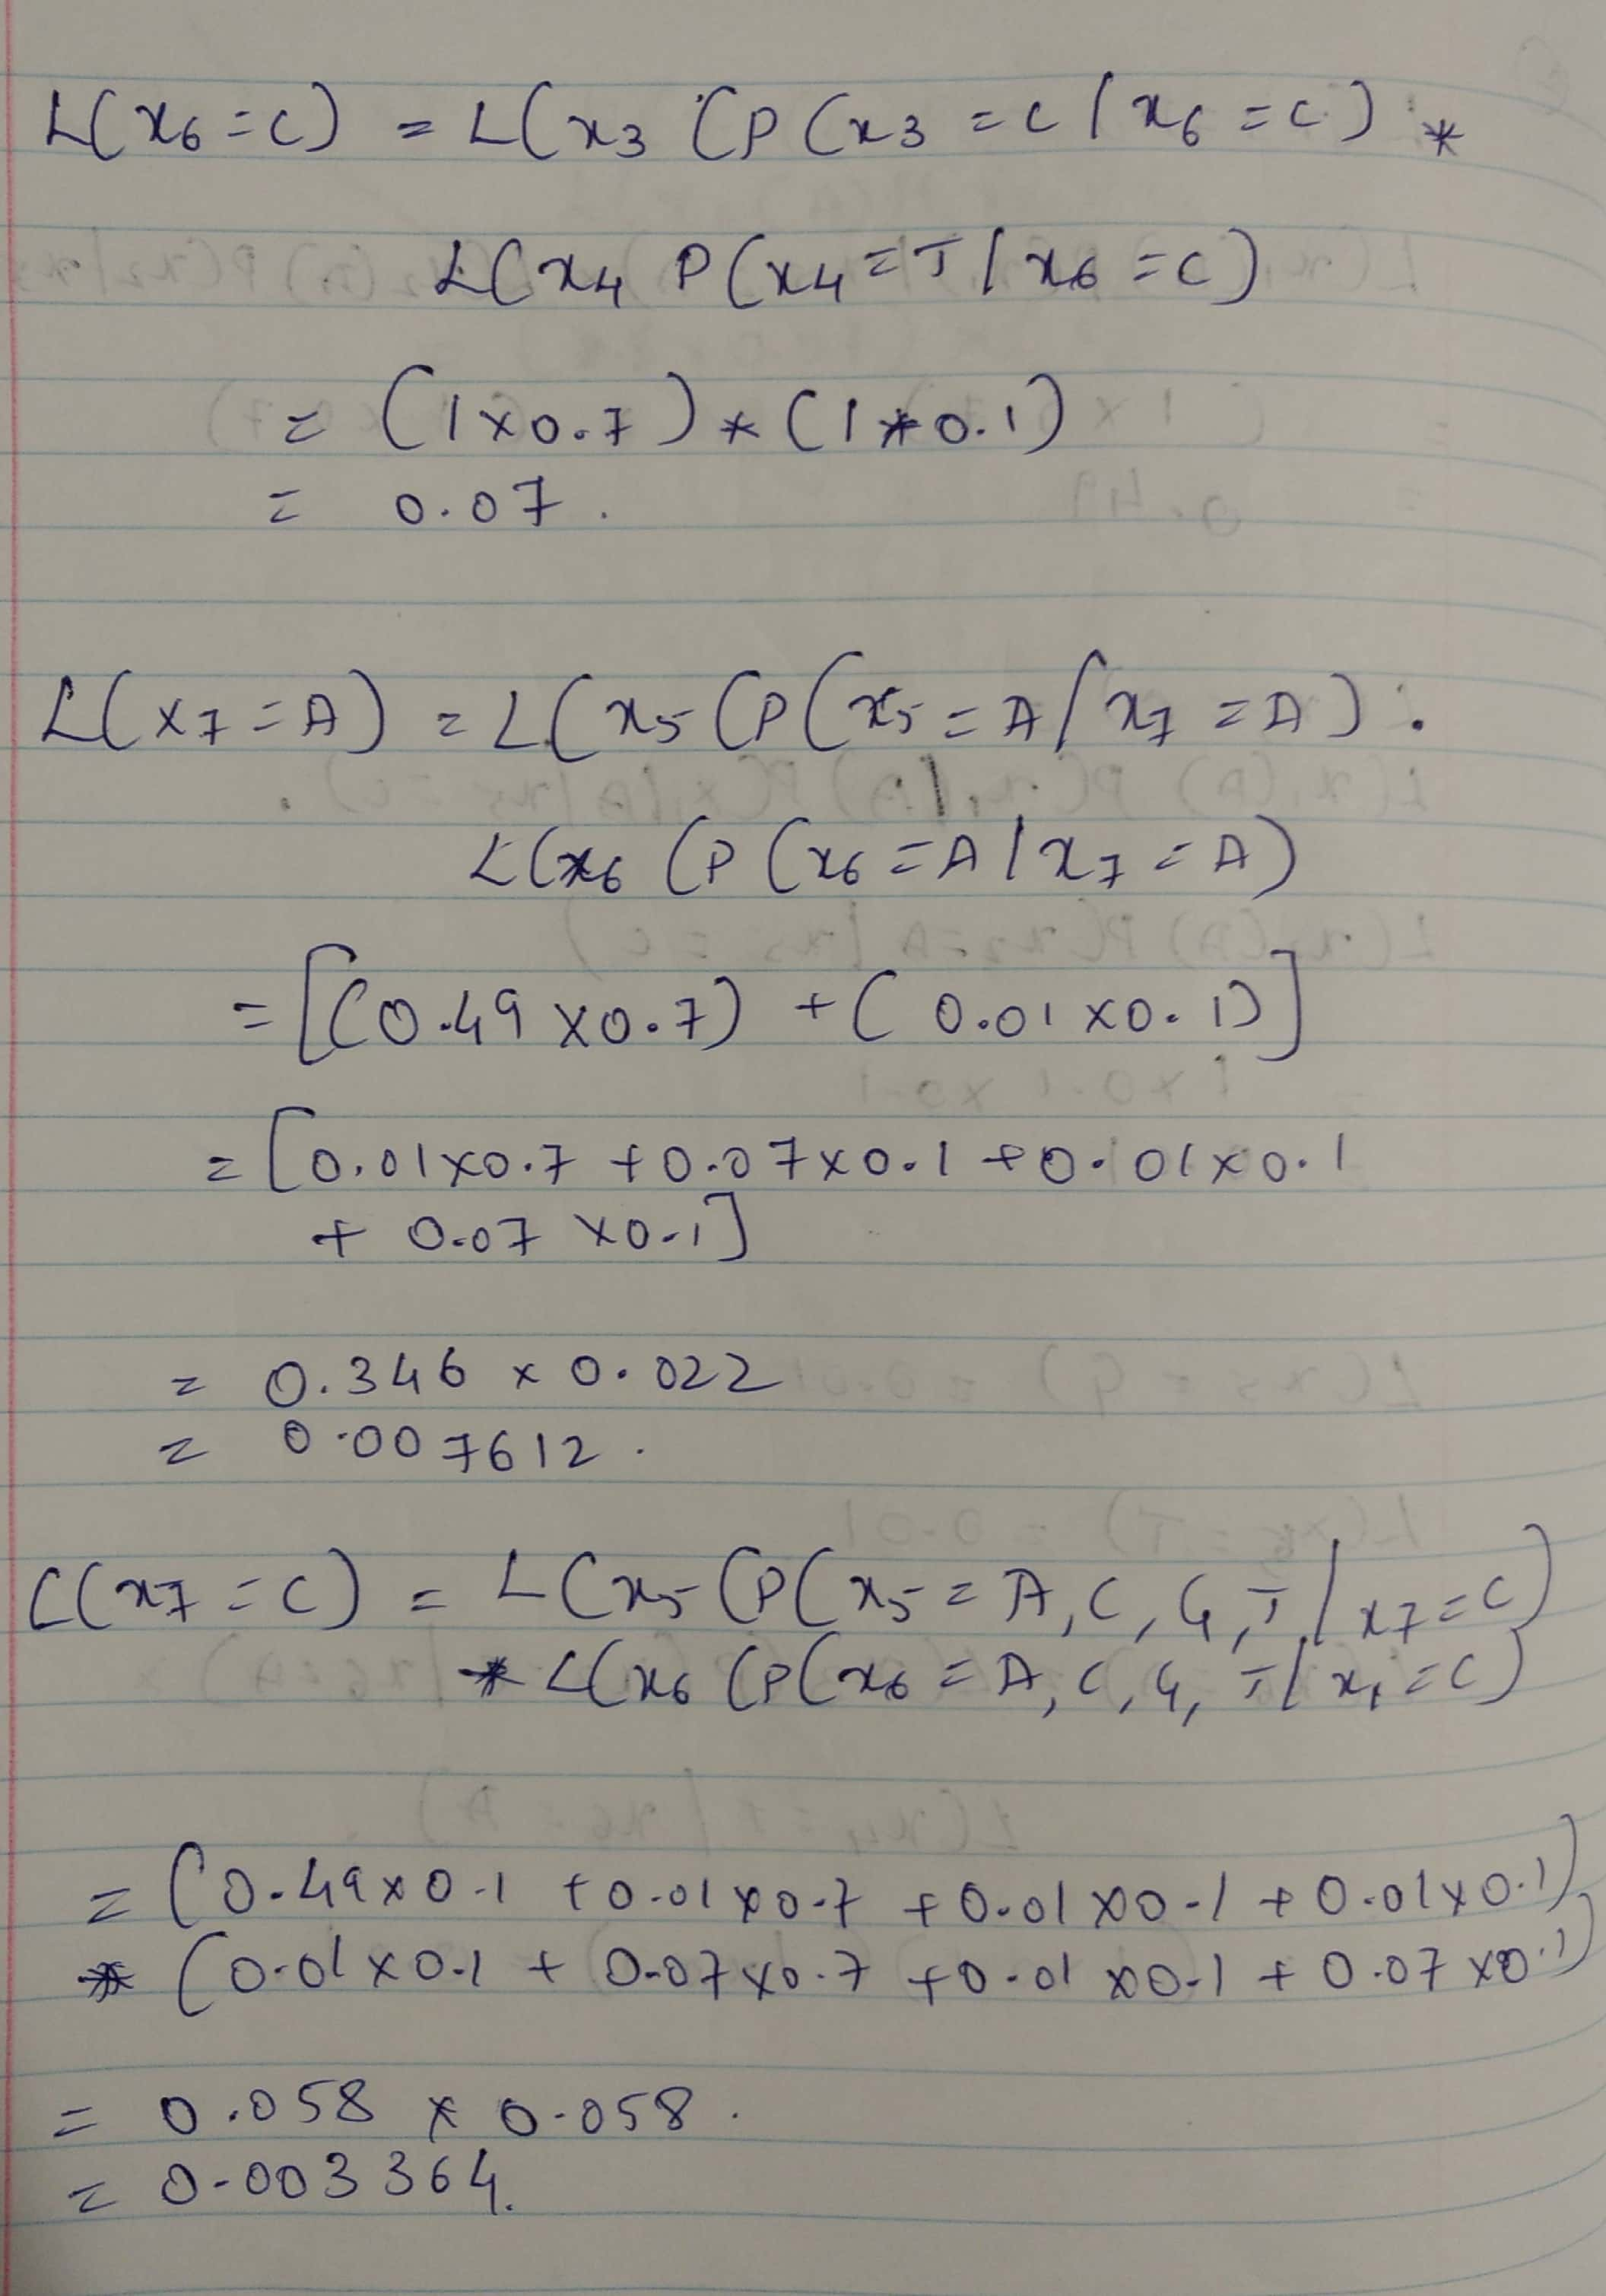 L(x6=C) = L(x3 (P(x3=C/x6=C) *
L(x4 P(x4=T/x6=C)
= (1x0.7)*(1*0.1)
= 0.07.
L(x7=A) = L(x5(P(x5=A/x7=A).
L(x6 (P(x6=A/x7=A)
=[(0.49x0.7) + (0.01x0.1)]
=[0.01x0.7+0.07x0.1+0.01x0.1
+ 0.07x0.1]
= 0.346 x 0.022
= 0.007612.
L(x7=C) = L(x5(P(x5=A,C,G,T/x7=C)
* L(x6(P(x6=A,C,G,T/x1=C)
= (0.49x0.1+0.01x0.7+0.01x0.1+0.01x0.1)
* (0.01x0.1+0.07x0.7+0.01x0.1+0.07x0.1)
= 0.058 x 0.058.
= 0.003364.